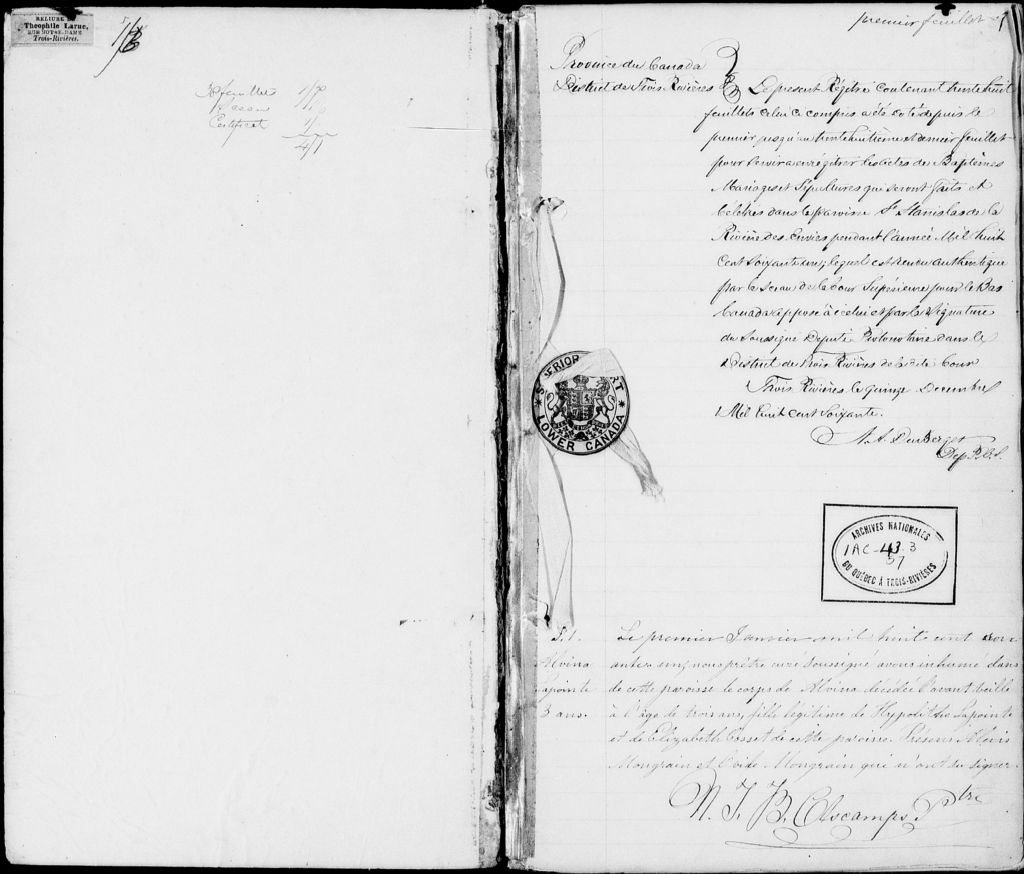 RELIURE DE
Theophile Larue,
RUE NOTRE-DAME
Trois-Rivières.
38 feuillets
Sceau
Certificat
4/1
premier feuillet
Province du Canada
District de Trois Rivières
Le présent Régitre contenant trente huit
feuillets celui ci compris a été coté depuis le
premier jusqu'au trente huitième et dernier feuillet
pour servir a enrégitrer les actes de Baptêmes
Mariages et Sépultures qui seront faits et
Célébrés dans la paroisse St Stanislas de la
Rivière des Envies pendant l'année Mil huit
Cent Soixante un; lequel est rendu authentique
par le sceau de la Cour Supérieure pour le Bas
Canada apposé à icelui et par la Signature
du Soussigné Député Protonotaire dans le
District de Trois Rivières de la dite Cour
Trois Rivières le quinze Decembre
Mil huit cent Soixante.
Dep P.C.S.
SUPERIOR COURT
LOWER CANADA
ARCHIVES NATIONALES
1AC-43.3
57
DU QUÉBEC À TROIS-RIVIÈRES
S. 1.
Alvina
Lapointe
3 ans.
Le premier Janvier mil huit cent soix-
ante-un, nous prêtre curé soussigné avons inhumé dans
de cette paroisse le corps de Alvina décédée l'avant veille
à l'âge de trois ans, fille légitime de Hypolithe Lapointe
et de Elizabeth Cosset de cette paroisse. Présens Alexis
Mongrain et Ovide Mongrain qui n'ont su signer.
Ptre